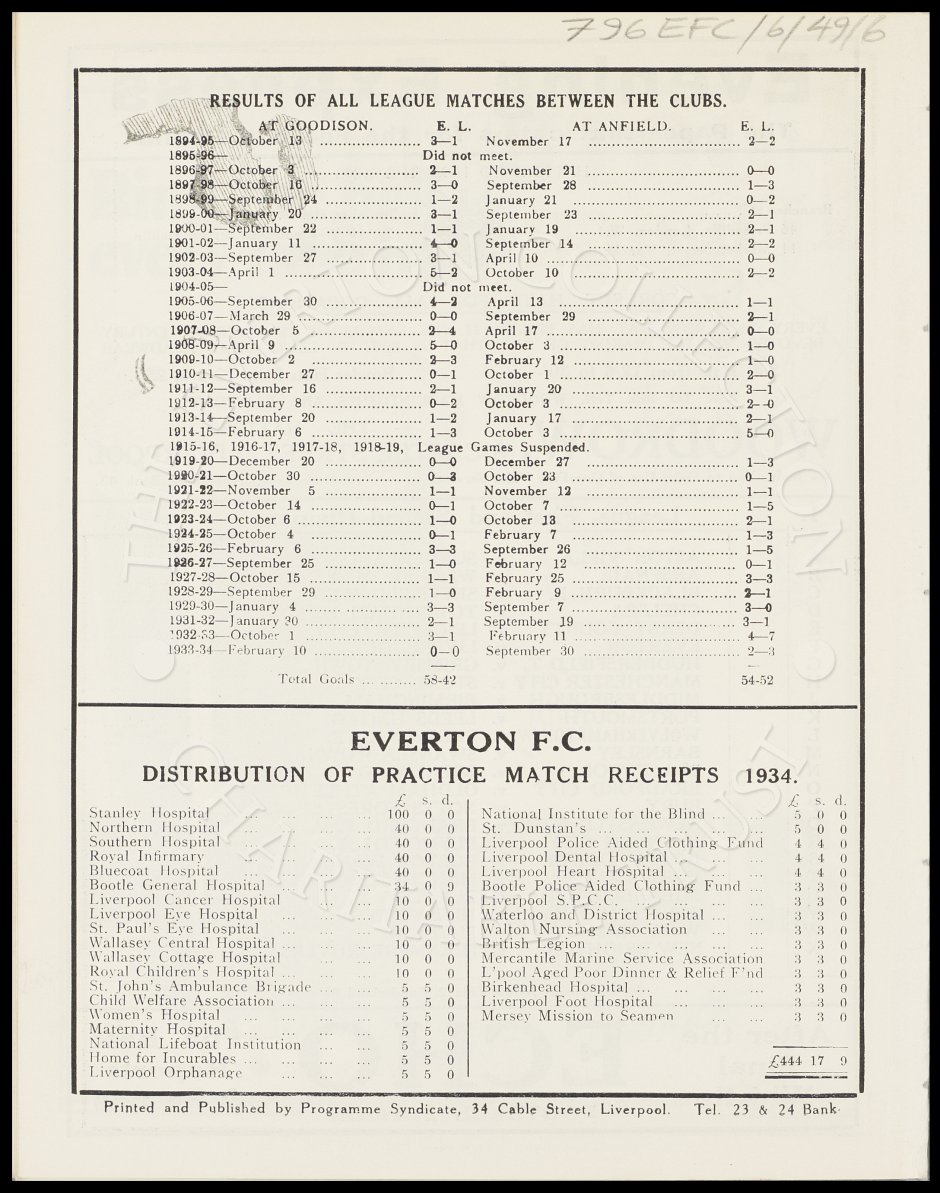 796 EFC/6/49/6
RESULTS OF ALL LEAGUE MATCHES BETWEEN THE CLUBS.
AT GOODISON. E. L. AT ANFIELD. E. L.
1894-95—October 13 3—1 November 17 2—2
1895-96— Did not meet.
1896-97—October 3 2—1 November 21 0—0
1897-98—October 16 3—0 September 28 1—3
1898-99—September 24 1—2 January 21 0—2
1899-00—January 20 3—1 September 23 2—1
1900-01—September 22 1—1 January 19 2—1
1901-02—January 11 4—0 September 14 2—2
1902-03—September 27 3—1 April 10 0—0
1903-04—April 1 5—2 October 10 2—2
1904-05— Did not meet.
1905-06—September 30 4—2 April 13 1—1
1906-07—March 29 0—0 September 29 2—1
1907-08—October 5 2—4 April 17 0—0
1908-09—April 9 5—0 October 3 1—0
1909-10—October 2 2—3 February 12 1—0
1910-11—December 27 0—1 October 1 2—0
1911-12—September 16 2—1 January 20 3—1
1912-13—February 8 0—2 October 3 2—0
1913-14—September 20 1—2 January 17 2—1
1914-15—February 6 1—3 October 3 5—0
1915-16, 1916-17, 1917-18, 1918-19, League Games Suspended.
1919-20—December 20 0—0 December 27 1—3
1920-21—October 30 0—3 October 23 0—1
1921-22—November 5 1—1 November 12 1—1
1922-23—October 14 0—1 October 7 1—5
1923-24—October 6 1—0 October 13 2—1
1924-25—October 4 0—1 February 7 1—3
1925-26—February 6 3—3 September 26 1—5
1926-27—September 25 1—0 February 12 0—1
1927-28—October 15 1—1 February 25 3—3
1928-29—September 29 1—0 February 9 2—1
1929-30—January 4 3—3 September 7 3—0
1931-32—January 30 2—1 September 19 3—1
1932-33—October 1 3—1 February 11 4—7
1933-34—February 10 0—0 September 30 2—3
Total Goals 58-42 54-52
EVERTON F.C.
DISTRIBUTION OF PRACTICE MATCH RECEIPTS 1934.
£ s. d.
Stanley Hospital 100 0 0
Northern Hospital 40 0 0
Southern Hospital 40 0 0
Royal Infirmary 40 0 0
Bluecoat Hospital 40 0 0
Bootle General Hospital 34 0 9
Liverpool Cancer Hospital 10 0 0
Liverpool Eye Hospital 10 0 0
St. Paul's Eye Hospital 10 0 0
Wallasey Central Hospital 10 0 0
Wallasey Cottage Hospital 10 0 0
Royal Children's Hospital 10 0 0
St. John's Ambulance Brigade 5 5 0
Child Welfare Association 5 5 0
Women's Hospital 5 5 0
Maternity Hospital 5 5 0
National Lifeboat Institution 5 5 0
Home for Incurables 5 5 0
Liverpool Orphanage 5 5 0
£ s. d.
National Institute for the Blind 5 0 0
St. Dunstan's 5 0 0
Liverpool Police Aided Clothing Fund 4 4 0
Liverpool Dental Hospital 4 4 0
Liverpool Heart Hospital 4 4 0
Bootle Police Aided Clothing Fund 3 3 0
Liverpool S.P.C.C. 3 3 0
Waterloo and District Hospital 3 3 0
Walton Nursing Association 3 3 0
British Legion 3 3 0
Mercantile Marine Service Association 3 3 0
L'pool Aged Poor Dinner & Relief F'nd 3 3 0
Birkenhead Hospital 3 3 0
Liverpool Foot Hospital 3 3 0
Mersey Mission to Seamen 3 3 0
£444 17 9
Printed and Published by Programme Syndicate, 34 Cable Street, Liverpool. Tel. 23 & 24 Bank.
THE EVERTON COLLECTION
CHARITABLE TRUST